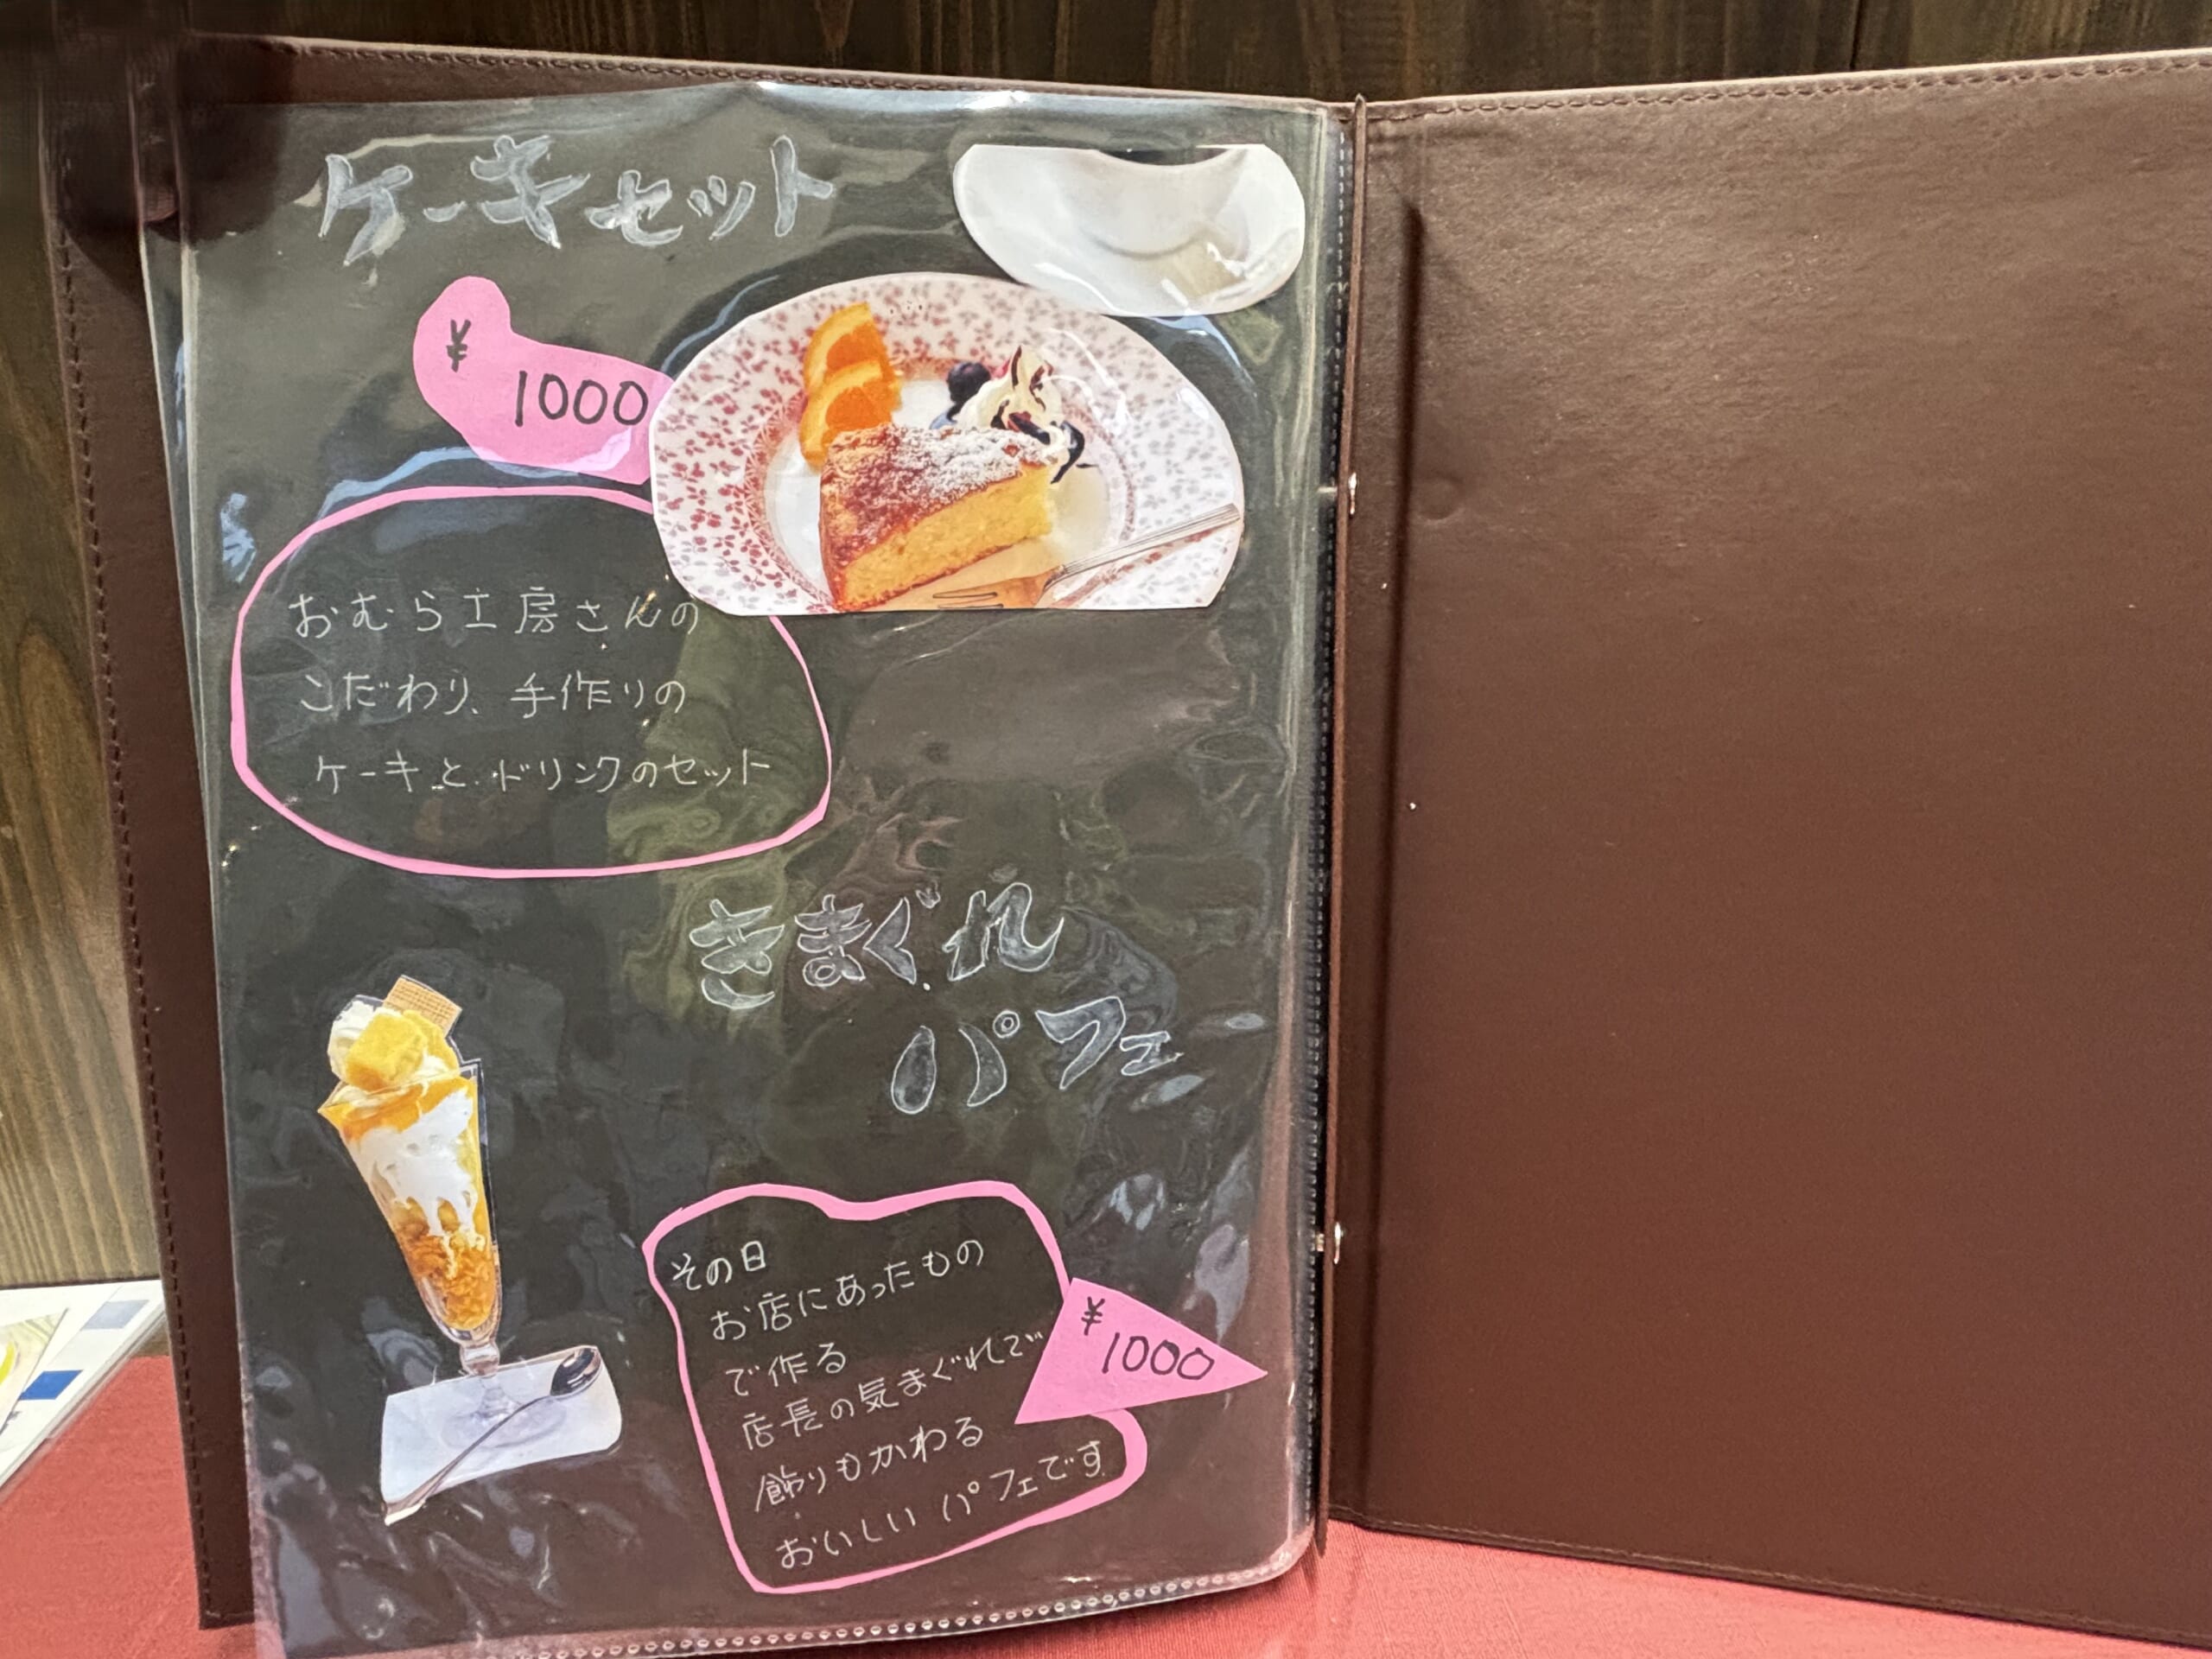 ケーキセット
¥1000
おむら工房さんの
こだわり、手作りの
ケーキと、ドリンクのセット
きまぐれ
パフェ
その日
お店にあったもの
で作る
店長の気まぐれで
飾りもかわる
おいしいパフェです
¥1000